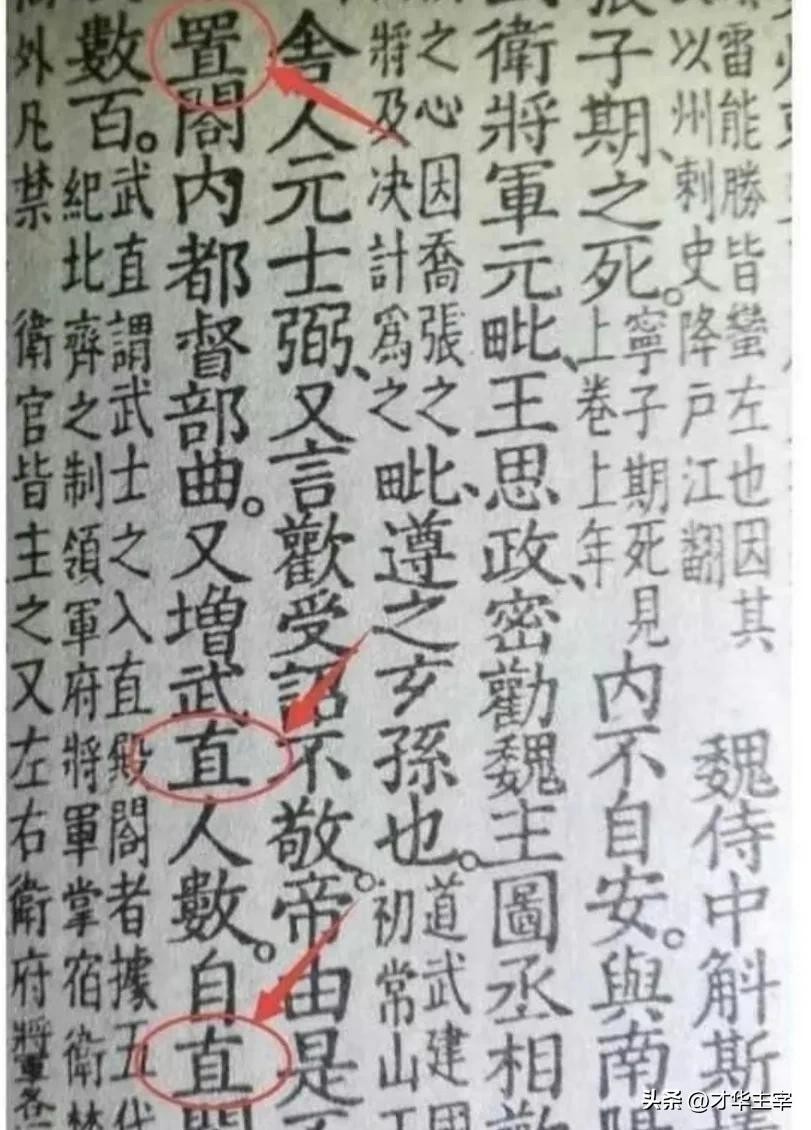 雷能勝皆蠻左也因其
以州刺史降戶江翻
魏侍中斛斯
子期、之死。
寧子期死見
上卷上年
內不自安。與南
衛將軍元毗、王思政、密勸魏主圖丞相
之心因喬張之
將及決計爲之
毗、遵之玄孫也。
道武建國
初常山
舍人元士弼、又言歡受詔不敬。帝由是
置閤內都督部曲。又增武直人數。自直
數百。
武直謂武士之入直殿閤者據五代
紀北齊之制領軍府將軍掌宿衛禁
外凡禁衛官皆主之又左右衛府將軍各
头条 @才华主宰